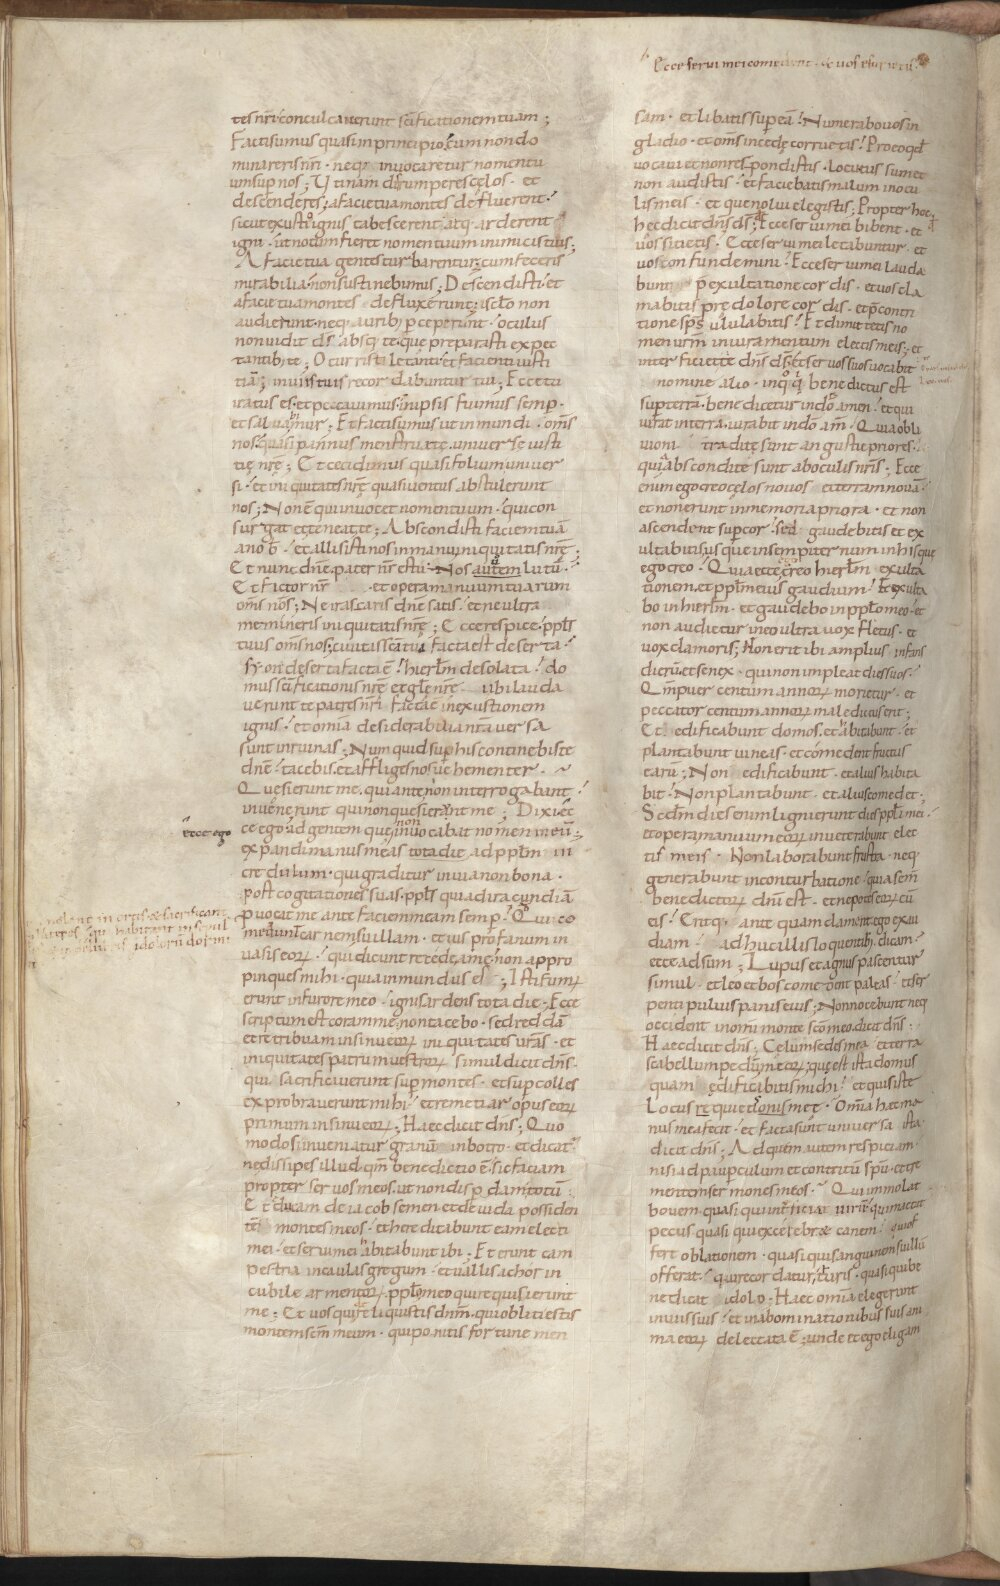 Ecce serui mei comedent · & uos esurietis ·
tes nr̄i conculcauerunt sc̄ificationem tuam ;
Facti sumus quasi in principio cum non do
minareris nr̄i · neq; inuocaretur nomen tuū
um sup nos ; Utinam dirumperes cęlos · et
descenderes ; afacie tua montes defluerent ·
sicut exustio ignis tabescerent · atq; arderent
igni · ut notum fieret nomen tuum inimicis tuis ;
A facie tua gentes turbarentur · cum feceris
mirabilia · non sustinebimus ; Descendisti · et
afacie tua montes defluxerunt ; asclo non
audierunt · neq; aurib; perceperunt · oculus
non uidit ds̄ absq; te · que preparasti expec
tantib; te ; Occurristi letanti · et facienti iusti
tiam ; in uiis tuis recordabuntur tui ; Ecce tu
iratus es · et peccauimus · in ipsis fuimus semp ·
et saluamur ; Et facti sumus ut inmundi · oms̄
nos · quasi pannus menstruatę uniuerse iusti
tię nrę̄ ; Et cecidimus quasi folium uniuer
si · et iniquitates nrę̄ quasi uentus abstulerunt
nos ; Non ē qui inuocet nomen tuum · qui con
surgat et teneat te ; Abscondisti faciem tuā
a nob̄ · et allisisti nos in manu iniquitatis nrę̄ ;
Et nunc dn̄e pater nr̄ es tu · Nos autem lutū ·
Et factor nr̄ · et opera manuum tuarum
oms̄ nos ; Ne irascaris dn̄e satis · et ne ultra
memineris iniquitatis nrę̄ ; Ecce respice · ppl̄s
tuus oms̄ nos ; ciuitas sc̄i tui facta est deserta ·
syon deserta facta ē · hierlm̄ desolata · do
mus sc̄ificationis nrę̄ et glę̄ nrę̄ ubi lauda
uerunt te patres nr̄i facta ē inexustionem
ignis · et omia desiderabilia nr̄a uersa
sunt in ruinas ; Numquid sup his continebis te
dn̄e · tacebis · et affliges nos uehementer · ~
Quesierunt me · qui ante non interrogabant ·
inuenerunt qui non quesierunt me ; Dixi ec
ecce ego
ce ego ad gentem que non inuocabat nomen meū ;
expandi manus meas tota die ad pplm̄ in
credulum · qui graditur in uia non bona ·
post cogitationes suas · ppl̄s qui ad iracundiā
puocat me ante faciem meam semp · Qui co
medunt carnem suillam · et ius profanum in
uasis eorū · qui dicunt recede a me · non appro
pinques mihi · quia inmundus es ; Isti fumus
erunt in furore meo · ignis ardens tota die · Ecce
scriptum est coram me · non tacebo · sed reddā
et retribuam in sinu eorū iniquitates ur̄as · et
iniquitates patrū uestrorū simul dicit dn̄s ·
qui sacrificauerunt sup montes · et sup colles
exprobrauerunt mihi · et remetiar opus eorū
primum in sinu eorū ; Haec dicit dn̄s ; Quo
modo si inueniatur granū in botro · et dicat̄
ne dissipes illud · qm̄ benedictio ē · sic faciam
propter seruos meos · ut non disp̄dam totū ;
Et educam de iacob semen · et de iuda possiden
tē montes meos · et hereditabunt eam electi
mei · et serui mei abitabunt ibi · Et erunt cam
pestria in caulas gregum · et uallis achor in
cubile armentorū · pplo meo qui requisierunt
me ; Et uos qui dereliquistis dnm̄ · qui obliti estis
montem scm̄ meum · qui ponitis fortune men
sam · et libatis sup eā · Numerabo uos in
gladio · et oms̄ in cede corruetis · Pro eo qd̄
uocaui et non respondistis · Locutus sum et
non audistis · et faciebatis malum in ocu
lis meis · et que nolui elegistis ; Propter hoc
hec dicit dn̄s ds̄ ; Ecce serui mei bibent · et
uos sitietis · Ecce serui mei letabuntur · et
uos confundemini · Ecce serui mei lauda
bunt p exultatione cordis · et uos cla
mabitis prę dolore cordis · et p̄ contri
tione sps̄ ululabitis · Et dimittetis no
men ur̄m in iuramentum electis meis ; et
interficiet te dn̄s ds̄ · et seruos suos uocabit
nomine alio · in quo qui benedictus est
sup terrā · benedicetur in dō amen · et qui
iurat in terra · iurabit in dō am̄ · Quia obli
uioni traditę sunt angustie priores ·
qui abscondite sunt ab oculis nr̄is ; Ecce
enim ego creo cęlos nouos et terram nouā ·
et non erunt in memoria priora · et non
ascendent sup cor · sed gaudebitis et ex
ultabitis usque in sempiternum in his que
ego creo · Quia ecce ego creo hierlm̄ exulta
tionem · et pplm̄ eius gaudium · Et exulta
bo in hierlm̄ · et gaudebo in pplo meo · et
non audietur in eo ultra uox fletus · et
uox clamoris ; Non erit ibi amplius infans
dierū · et senex · qui non impleat dies suos ·
Qm̄ puer centum annorū morietur · et
peccator centum annorū maledictus erit ;
Et edificabunt domos · et abitabunt · et
plantabunt uineas · et comedent fructus
earū ; Non edificabunt · et alius habita
bit · Non plantabunt · et alius comedet ;
Scdm̄ dies enim ligni erunt dies ppli mei ·
et opera manuum eorū inueterabunt elec
tis meis · Non laborabunt frustra · neq;
generabunt in conturbatione · quia sem̄
benedictorū dnī est · et nepotes eorū cū
eis · Eritq; ante quam clament · ego exau
diam · adhuc illis loquentib; · dicam ·
ecce adsum ; Lupus et agnus pascentur
simul · et leo et bos comedent paleas · et ser
penti puluis panis eius ; Non nocebunt neq;
occident in omi monte sc̄o meo · dicit dn̄s ·
Haec dicit dn̄s ; Celum sedes mea · et terra
scabellum pedum meorū ; que est ista domus
quam ędificabitis michi · et quis iste
locus requietionis męę · Omia haec ma
nus mea fecit · et facta sunt uniuersa ista
dicit dn̄s ; Ad quem autem respiciam ·
nisi ad paup̄culum et contritū spū · et tre
mentem sermones meos · Qui immolat
bouem · quasi qui interficiat uirū · qui mactat
pecus · quasi qui excerebret canem · qui of
fert oblationem · quasi qui sanguinem suillū
offerat · qui recordatur turis · quasi qui be
nedicat idolo · Haec omia elegerunt
in uiis suis · et in abominationibus suis ani
ma eorū delectata ē ; unde et ego eligam